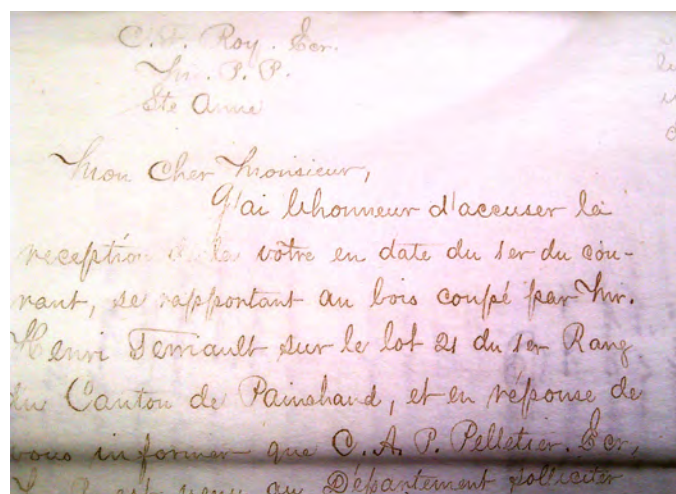 C. F. Roy. Ecr.
M. P. P.
Ste Anne
Mon Cher Monsieur,
J'ai l'honneur d'accuser la
reception de la vôtre en date du 1er du cou-
rant, se rapportant au bois coupé par Mr.
Henri Terriault sur le lot 21 du 1er Rang
du Canton de Painchaud, et en réponse de
vous informer que C. A. P. Pelletier. Ecr,
est venu au Département solliciter